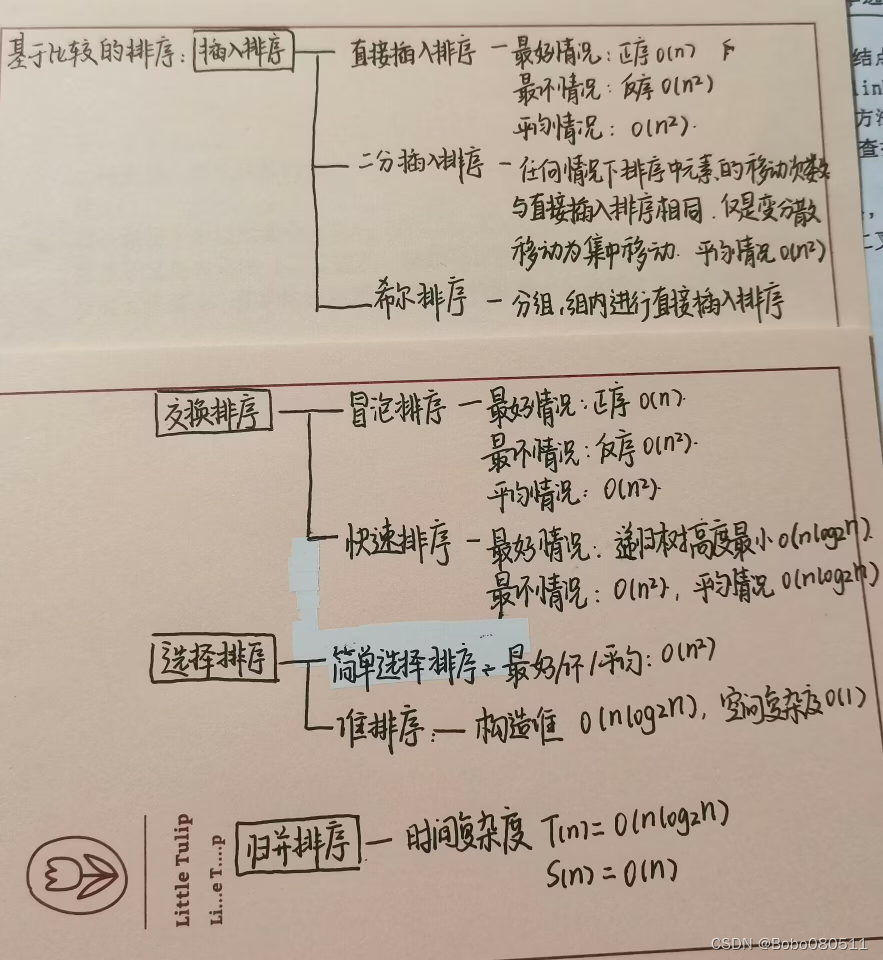 基于比较的排序：插入排序 — 直接插入排序 — 最好情况：正序 O(n)
最坏情况：反序 O(n²)
平均情况：O(n²).
二分插入排序 — 任何情况下排序中元素的移动次数
与直接插入排序相同，仅是变分散
移动为集中移动. 平均情况 O(n²)
希尔排序 — 分组，组内进行直接插入排序
交换排序 — 冒泡排序 — 最好情况：正序 O(n).
最坏情况：反序 O(n²).
平均情况：O(n²).
快速排序 — 最好情况：递归树高度最小 O(nlog2n).
最坏情况：O(n²)，平均情况 O(nlog2n)
选择排序 — 简单选择排序 — 最好/坏/平均：O(n²)
堆排序：— 构造堆 O(nlog2n)，空间复杂度 O(1)
归并排序 — 时间复杂度 T(n)=O(nlog2n)
S(n)=O(n)
Little Tulip
Li...e T....p
结点
方法
查
CSDN @Bobo080511